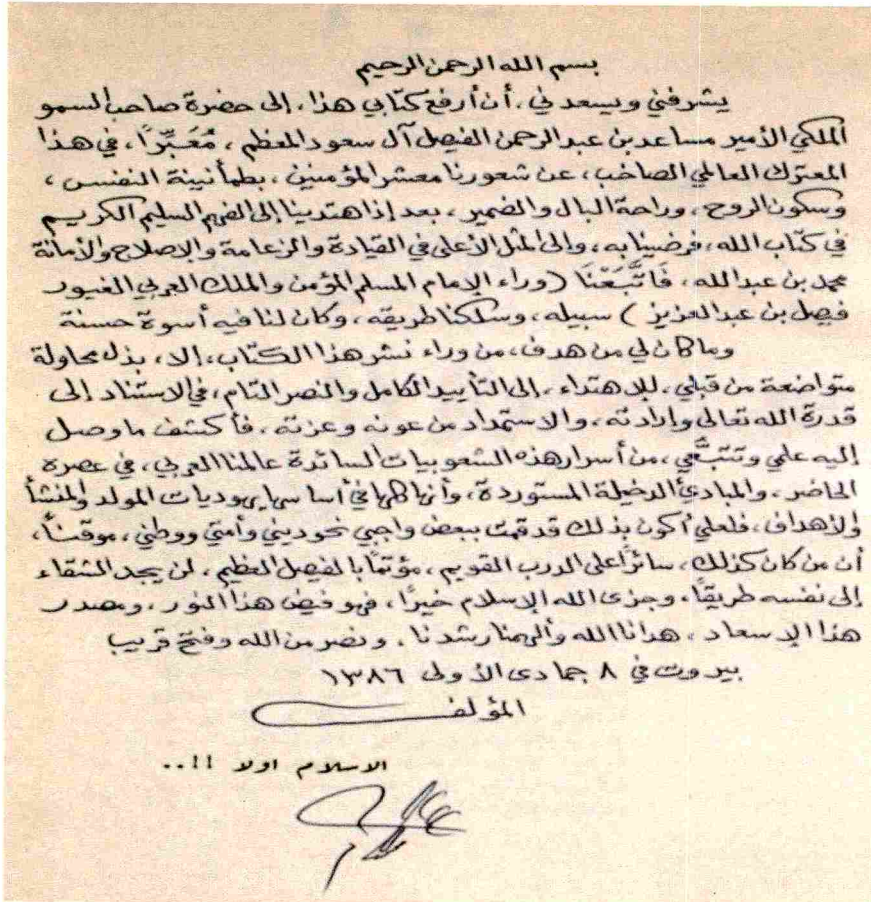 بسم الله الرحمن الرحيم
يشرفني ويسعدني، أن أرفع كتابي هذا، إلى حضرة صاحب السمو
الملكي الأمير مساعد بن عبد الرحمن الفيصل آل سعود المعظم، مُعَبِّراً، في هذا
المعترك العالمي الصاخب، عن شعورنا معشر المؤمنين، بطمأنينة النفس،
وسكون الروح، وراحة البال والضمير، بعد إذ اهتدينا إلى الفهم السليم الكريم
في كتاب الله، فرضينا به، والى المثل الأعلى في القيادة والزعامة والإصلاح والأمانة
محمد بن عبد الله، فَاتَّبَعْنَا (وراء الامام المسلم المؤمن والملك العربي الغيور
فيصل بن عبد العزيز) سبيله، وسلكنا طريقه، وكان لنا فيه أسوة حسنة
وما كان لي من هدف، من وراء نشر هذا الكتاب، إلا، بذل محاولة
متواضعة من قبلي، للاهتداء، إلى التأييد الكامل والنصر التام، في الاستناد إلى
قدرة الله تعالى وإرادته، والاستمداد من عونه وعزته، فأكشف ما وصل
إليه علمي وتتبُّعي، من أسرار هذه الشعوبيات السائدة عالمنا العربي، في عصره
الحاضر، والمبادئ الدخيلة المستوردة، وأنها كلها في أساسها يهوديات المولد والمنشأ
والأهداف، فلعلي أكون بذلك قد قمت ببعض واجبي نحو ديني وأمتي ووطني، موقناً،
أن من كان كذلك، سائراً على الدرب القويم، مؤتماً بالفيصل العظيم، لن يجد الشقاء
إلى نفسه طريقاً، وجزى الله الإسلام خيراً، فهو فيض هذا النور، ومصدر
هذا الإسعاد، هدانا الله وألهمنا رشدنا. ونصر من الله وفتح قريب
بيروت في ٨ جمادى الأولى ١٣٨٦
المؤلف
الاسلام اولا !!..